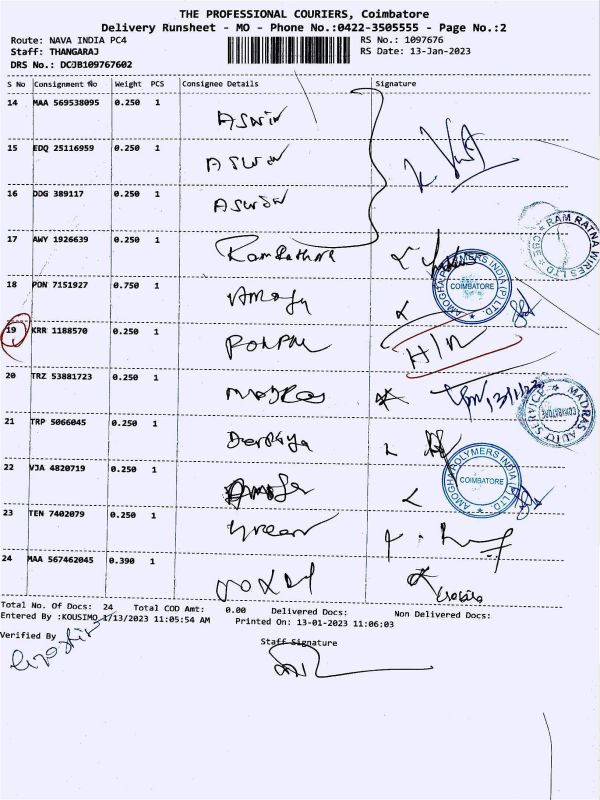 THE PROFESSIONAL COURIERS, Coimbatore
Delivery Runsheet - MO - Phone No.:0422-3505555 - Page No.:2
Route: NAVA INDIA PC4 RS No.: 1097676
Staff: THANGARAJ RS Date: 13-Jan-2023
DRS No.: DCJB109767602
S No Consignment No Weight PCS Consignee Details Signature
14 MAA 569538095 0.250 1 Aswin
15 EDQ 25116959 0.250 1 Aswin
16 DDG 389117 0.250 1 Aswin
RAM RATNA WIRES LTD CBE
17 AWY 1926639 0.250 1
AMOGHA POLYMERS INDIA (P) LTD. COIMBATORE
18 PON 7151927 0.750 1 Amoga
19 KRR 1188570 0.250 1 H/N
20 TRZ 53881723 0.250 1 13/1/23
MADRAS AUTO SERVICE COIMBATORE
21 TRP 5066045 0.250 1
22 VJA 4820719 0.250 1 Amoga
AMOGHA POLYMERS INDIA (P) LTD. COIMBATORE
23 TEN 7402079 0.250 1
24 MAA 567462045 0.390 1
Total No. Of Docs: 24 Total COD Amt: 0.00 Delivered Docs: Non Delivered Docs:
Entered By :KOUSIMO 1/13/2023 11:05:54 AM Printed On: 13-01-2023 11:06:03
Verified By Staff Signature